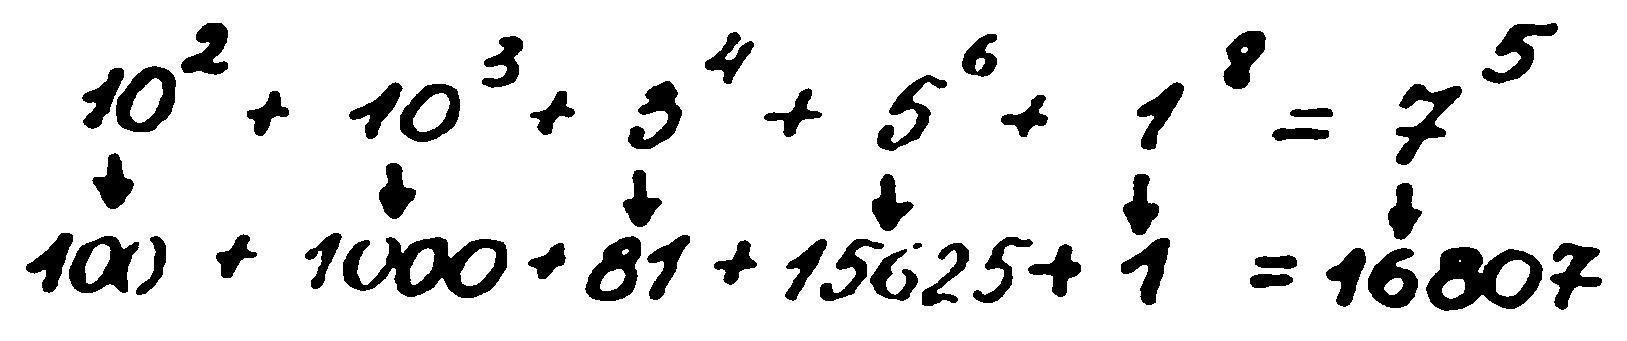 10² + 10³ + 3⁴ + 5⁶ + 1⁸ = 7⁵
↓ ↓ ↓ ↓ ↓ ↓
100 + 1000 + 81 + 15625 + 1 = 16807